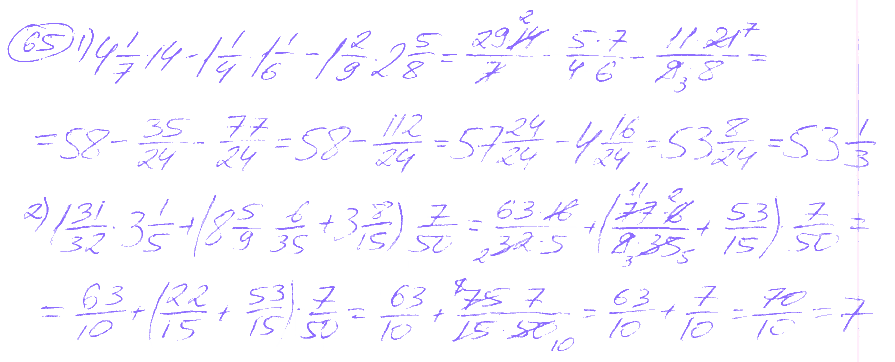 65 1) 4 1/7 · 14 - 1 1/4 · 1 1/6 - 1 2/9 · 2 5/8 = 29·14²/7 - 5/4 · 7/6 - 11·21⁷/9₃·8 =
= 58 - 35/24 - 77/24 = 58 - 112/24 = 57 24/24 - 4 16/24 = 53 8/24 = 53 1/3
2) 1 31/32 · 3 1/5 + (8 5/9 · 6/35 + 3 8/15) · 7/50 = 63·16/₂32·5 + (77¹¹·6²/9₃·35₅ + 53/15) · 7/50 =
= 63/10 + (22/15 + 53/15) · 7/50 = 63/10 + 75·7/15·50₁₀ = 63/10 + 7/10 = 70/10 = 7